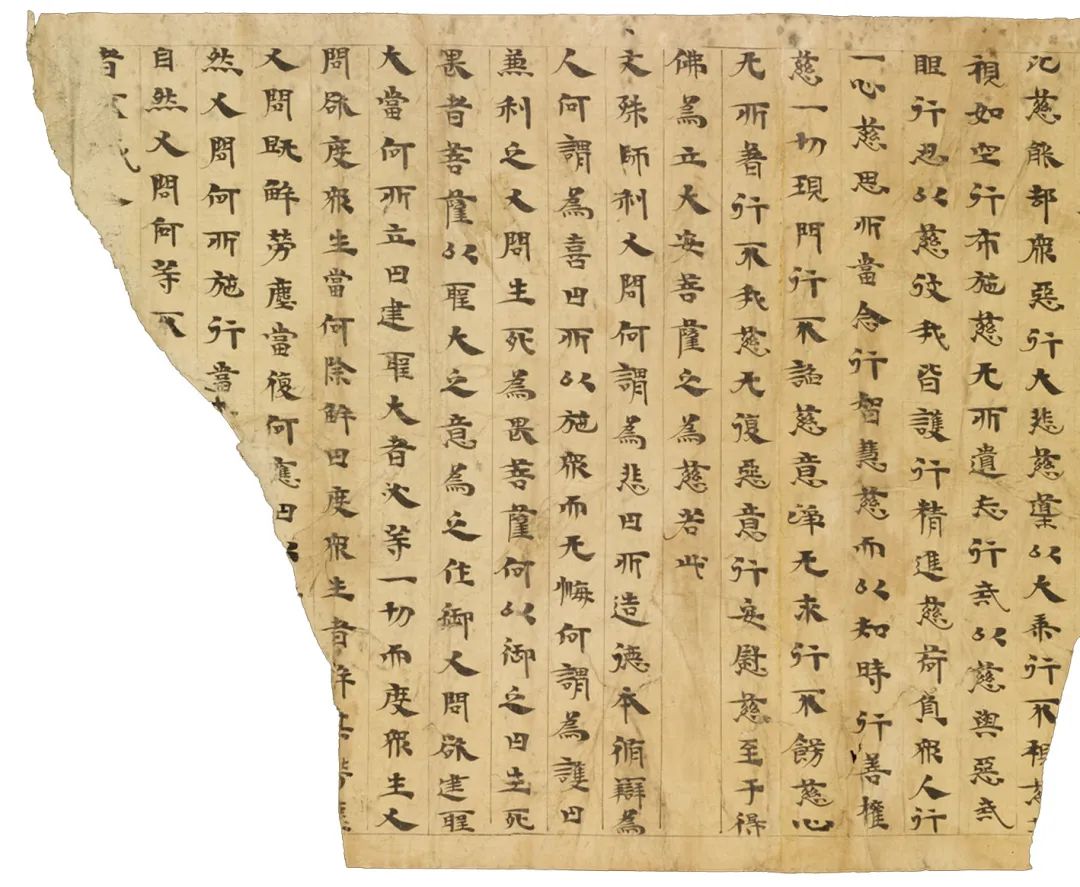 慈能却衆惡行大悲慈導以大乘行不視慈
視如空行布施慈无所遺忘行戒以慈與惡戒
眼行忍以慈彼我皆護行精進慈荷負衆人行
一心慈思所當念行智慧慈而以知時行善權
慈一切現門行不謟慈意淨无求行不餝慈心
无所著行不我慈无復惡意行安慰慈至于得
佛為立大安菩薩之為慈若此
文殊師利又問何謂為悲曰所造德本脩辯為
人何謂為喜曰所以施衆而无悔何謂為護曰
兼利之又問生死為畏菩薩何以御之曰生死
畏者菩薩以聖大之意為之住御又問欲建聖
大當何所立曰建聖大者必等一切而度衆生又
問欲度衆生當何除解曰度衆生者解其勞塵
又問既解勞塵當復何應曰以
然又問何所施行當
自然又問何等不
者